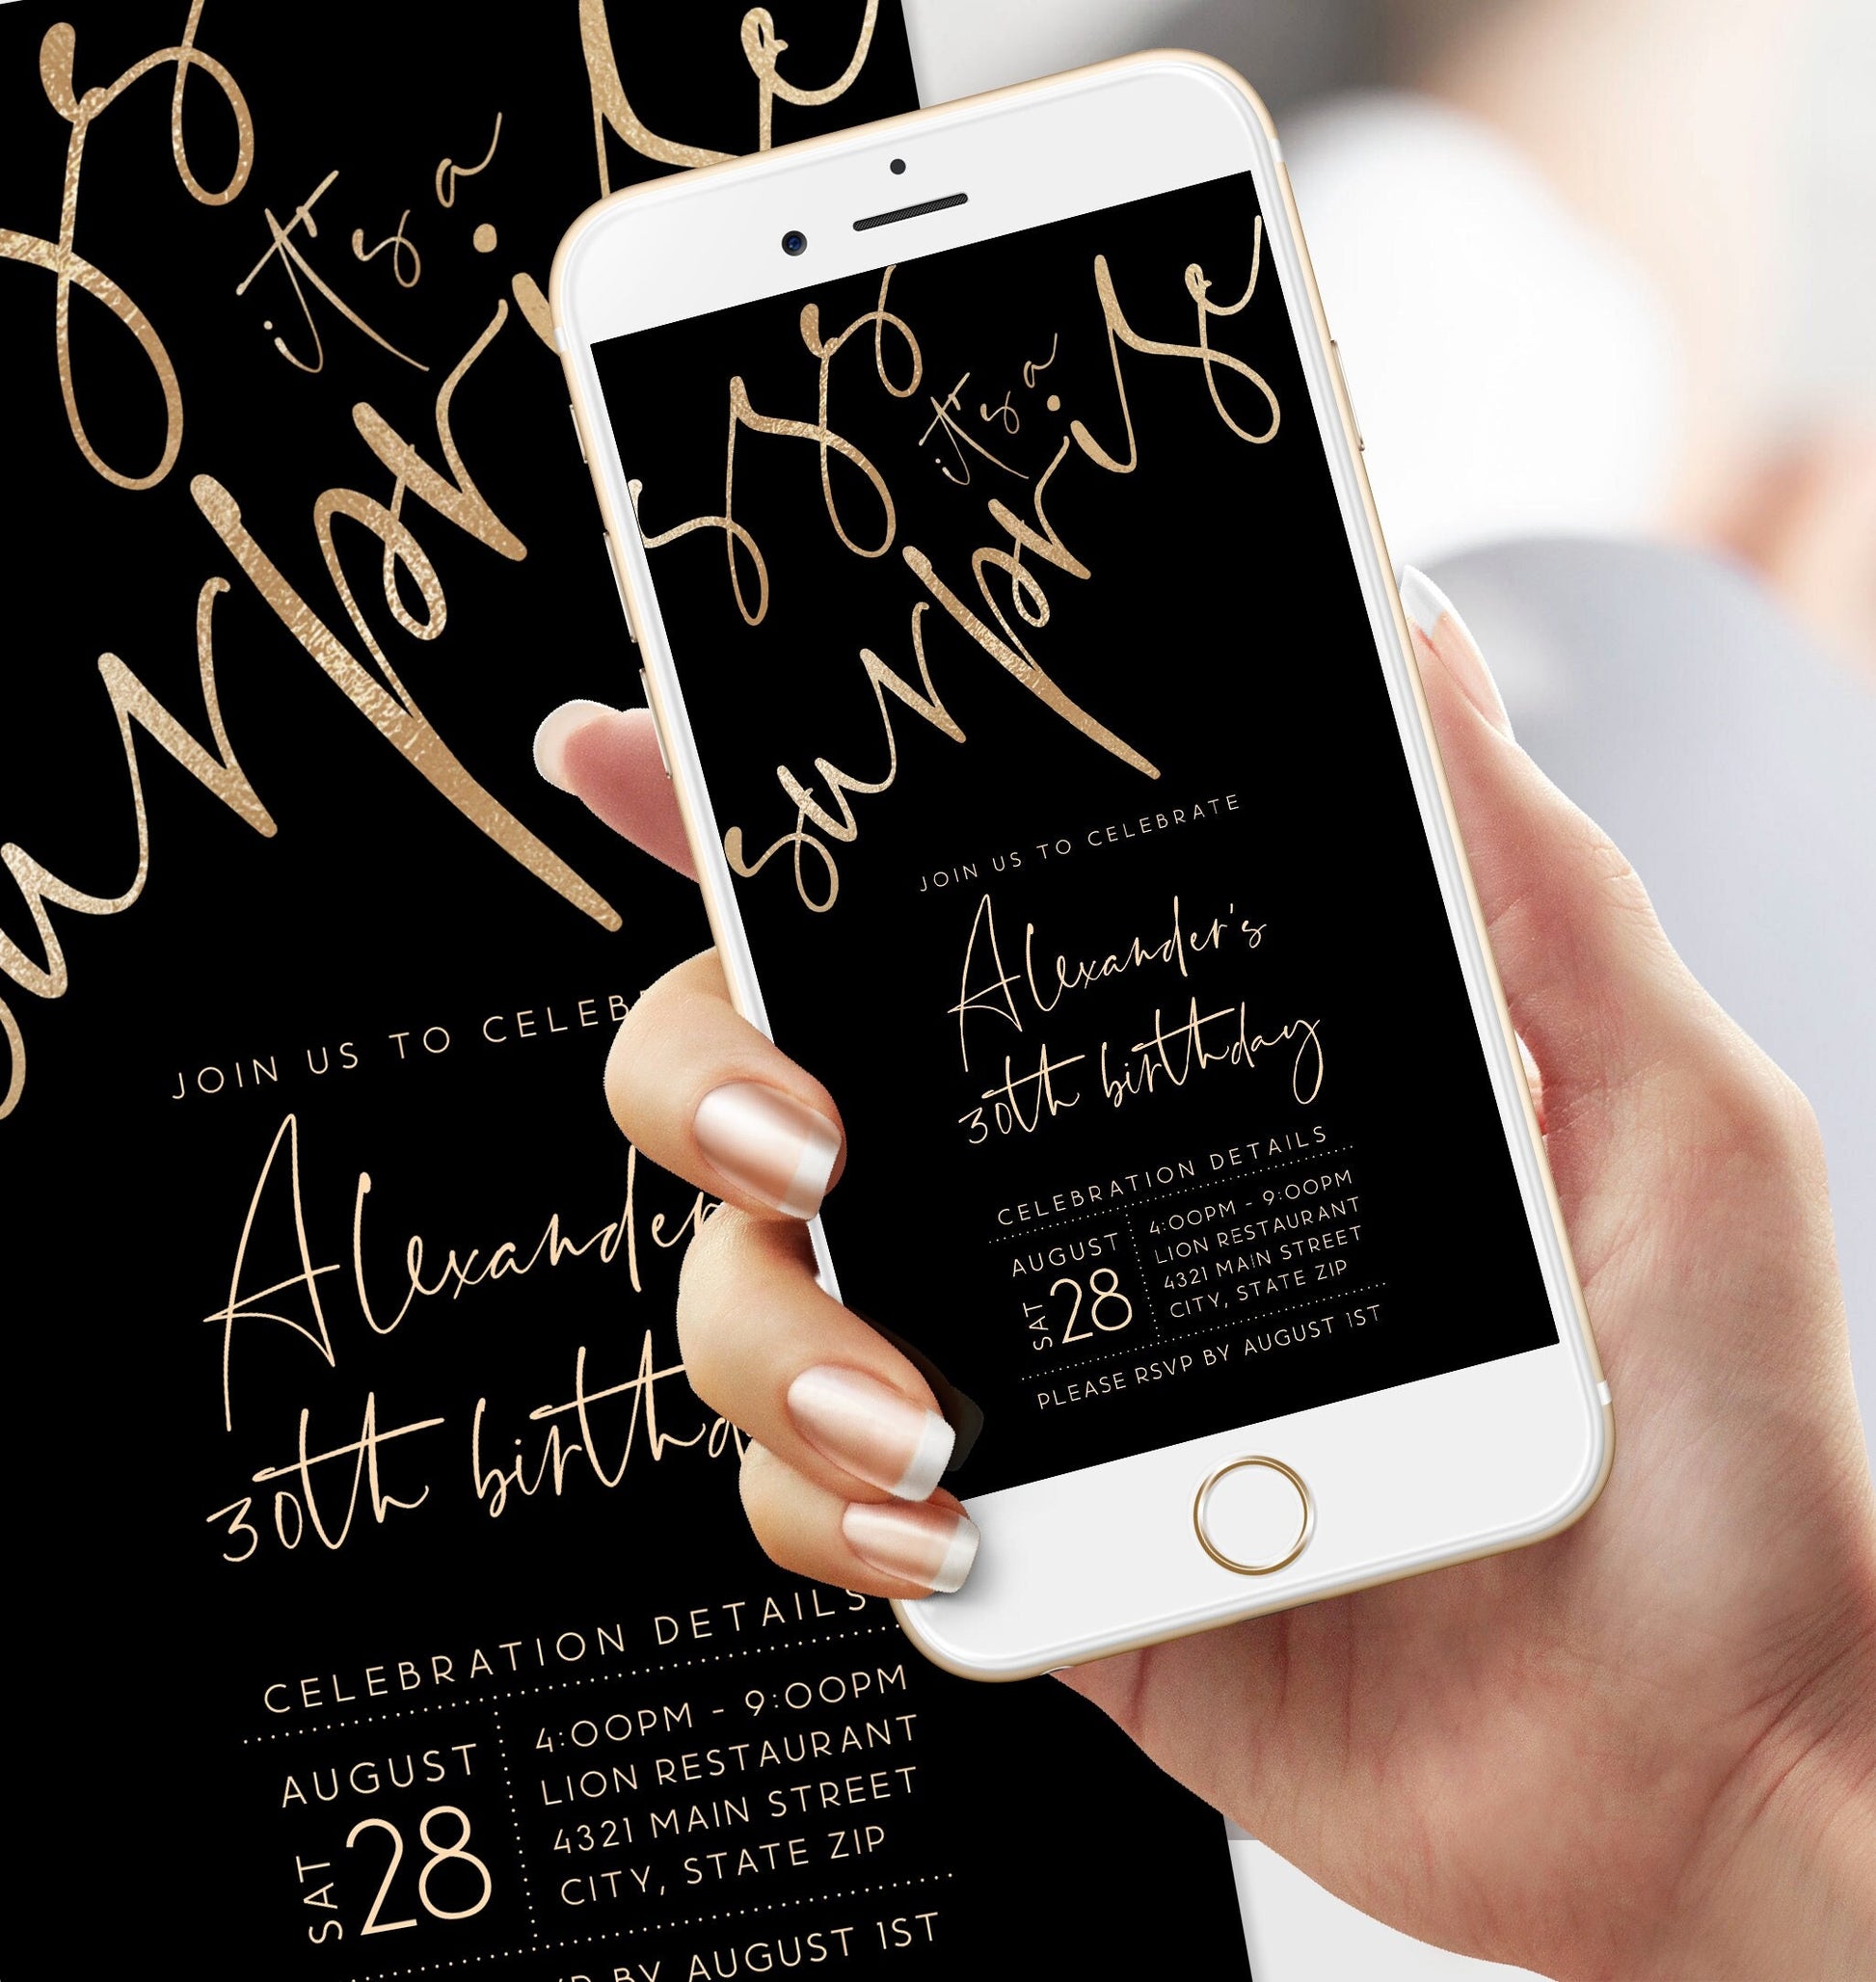 sss
it's a
surprise
JOIN US TO CELEBRATE
Alexander's
30th birthday
CELEBRATION DETAILS
AUGUST
SAT 28
4:00PM - 9:00PM
LION RESTAURANT
4321 MAIN STREET
CITY, STATE ZIP
PLEASE RSVP BY AUGUST 1ST
it's a
JOIN US TO CELEB
Alexander
30th birthd
CELEBRATION DETAILS
AUGUST
SAT 28
4:00PM - 9:00PM
LION RESTAURANT
4321 MAIN STREET
CITY, STATE ZIP
BY AUGUST 1ST